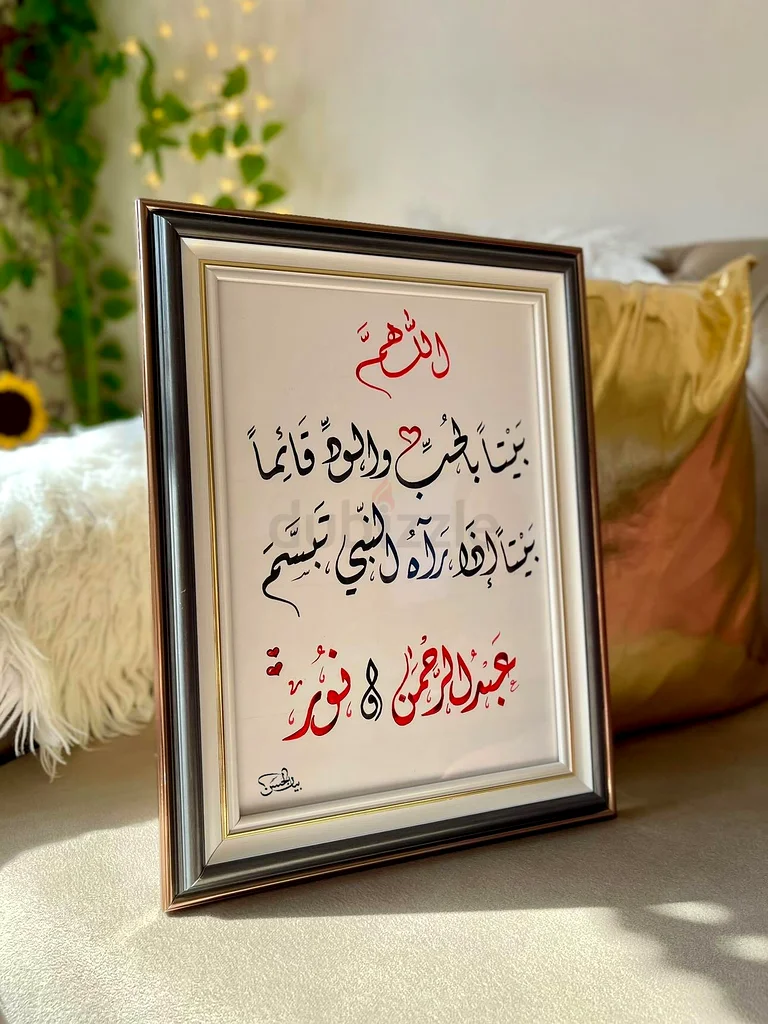 اللّهمَّ
بَيْتاً بالحُبِّ والودِّ قَائِماً
بَيْتاً إذَا رَآهُ النبّي تَبَسَّمَ
عَبْدُالرَّحْمٰن & نُور
بيان الحسن
dubizzle